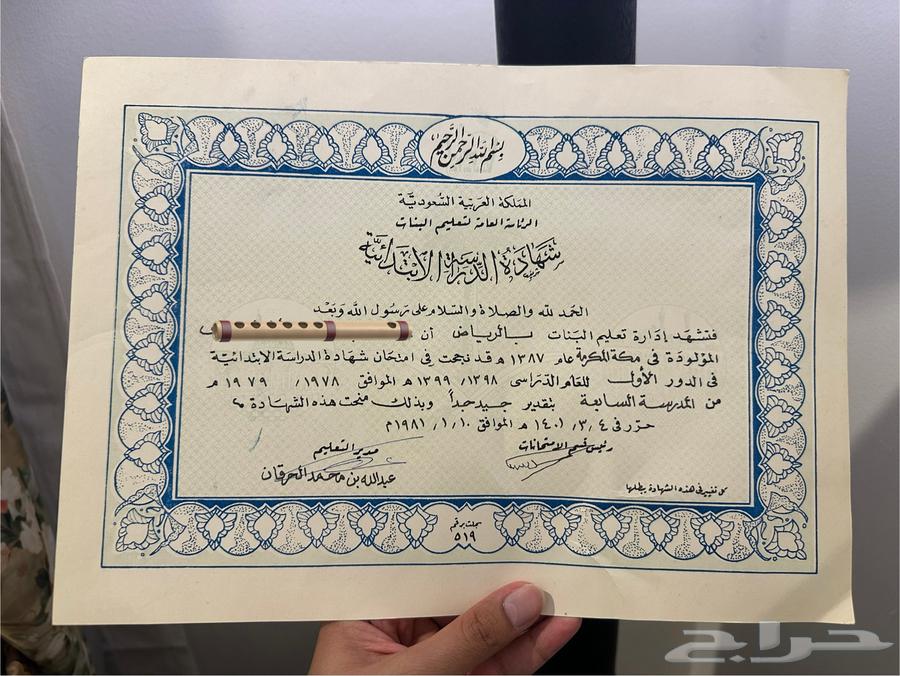 بسم الله الرحمن الرحيم
المملكة العربية السعودية
الرئاسة العامة لتعليم البنات
شهادة الدراسة الابتدائية
الحمد لله والصلاة والسلام على رسول الله وبعد
فتشهد إدارة تعليم البنات بالرياض أن
المولودة في مكة المكرمة عام ١٣٨٧ هـ قد نجحت في امتحان شهادة الدراسة الابتدائية
في الدور الأول للعام الدراسي ١٣٩٨/ ١٣٩٩ هـ الموافق ١٩٧٨/ ١٩٧٩ م
من المدرسة السابعة بتقدير جيد جداً وبذلك منحت هذه الشهادة ؟
حرر في ٤/ ٣/ ١٤٠١ هـ الموافق ١٠/ ١/ ١٩٨١م
رئيس قسم الامتحانات
مدير التعليم
عبدالله بن محمد الحرقان
كل تغيير في هذه الشهادة يبطلها
سجلت برقم
٥١٩
حراج